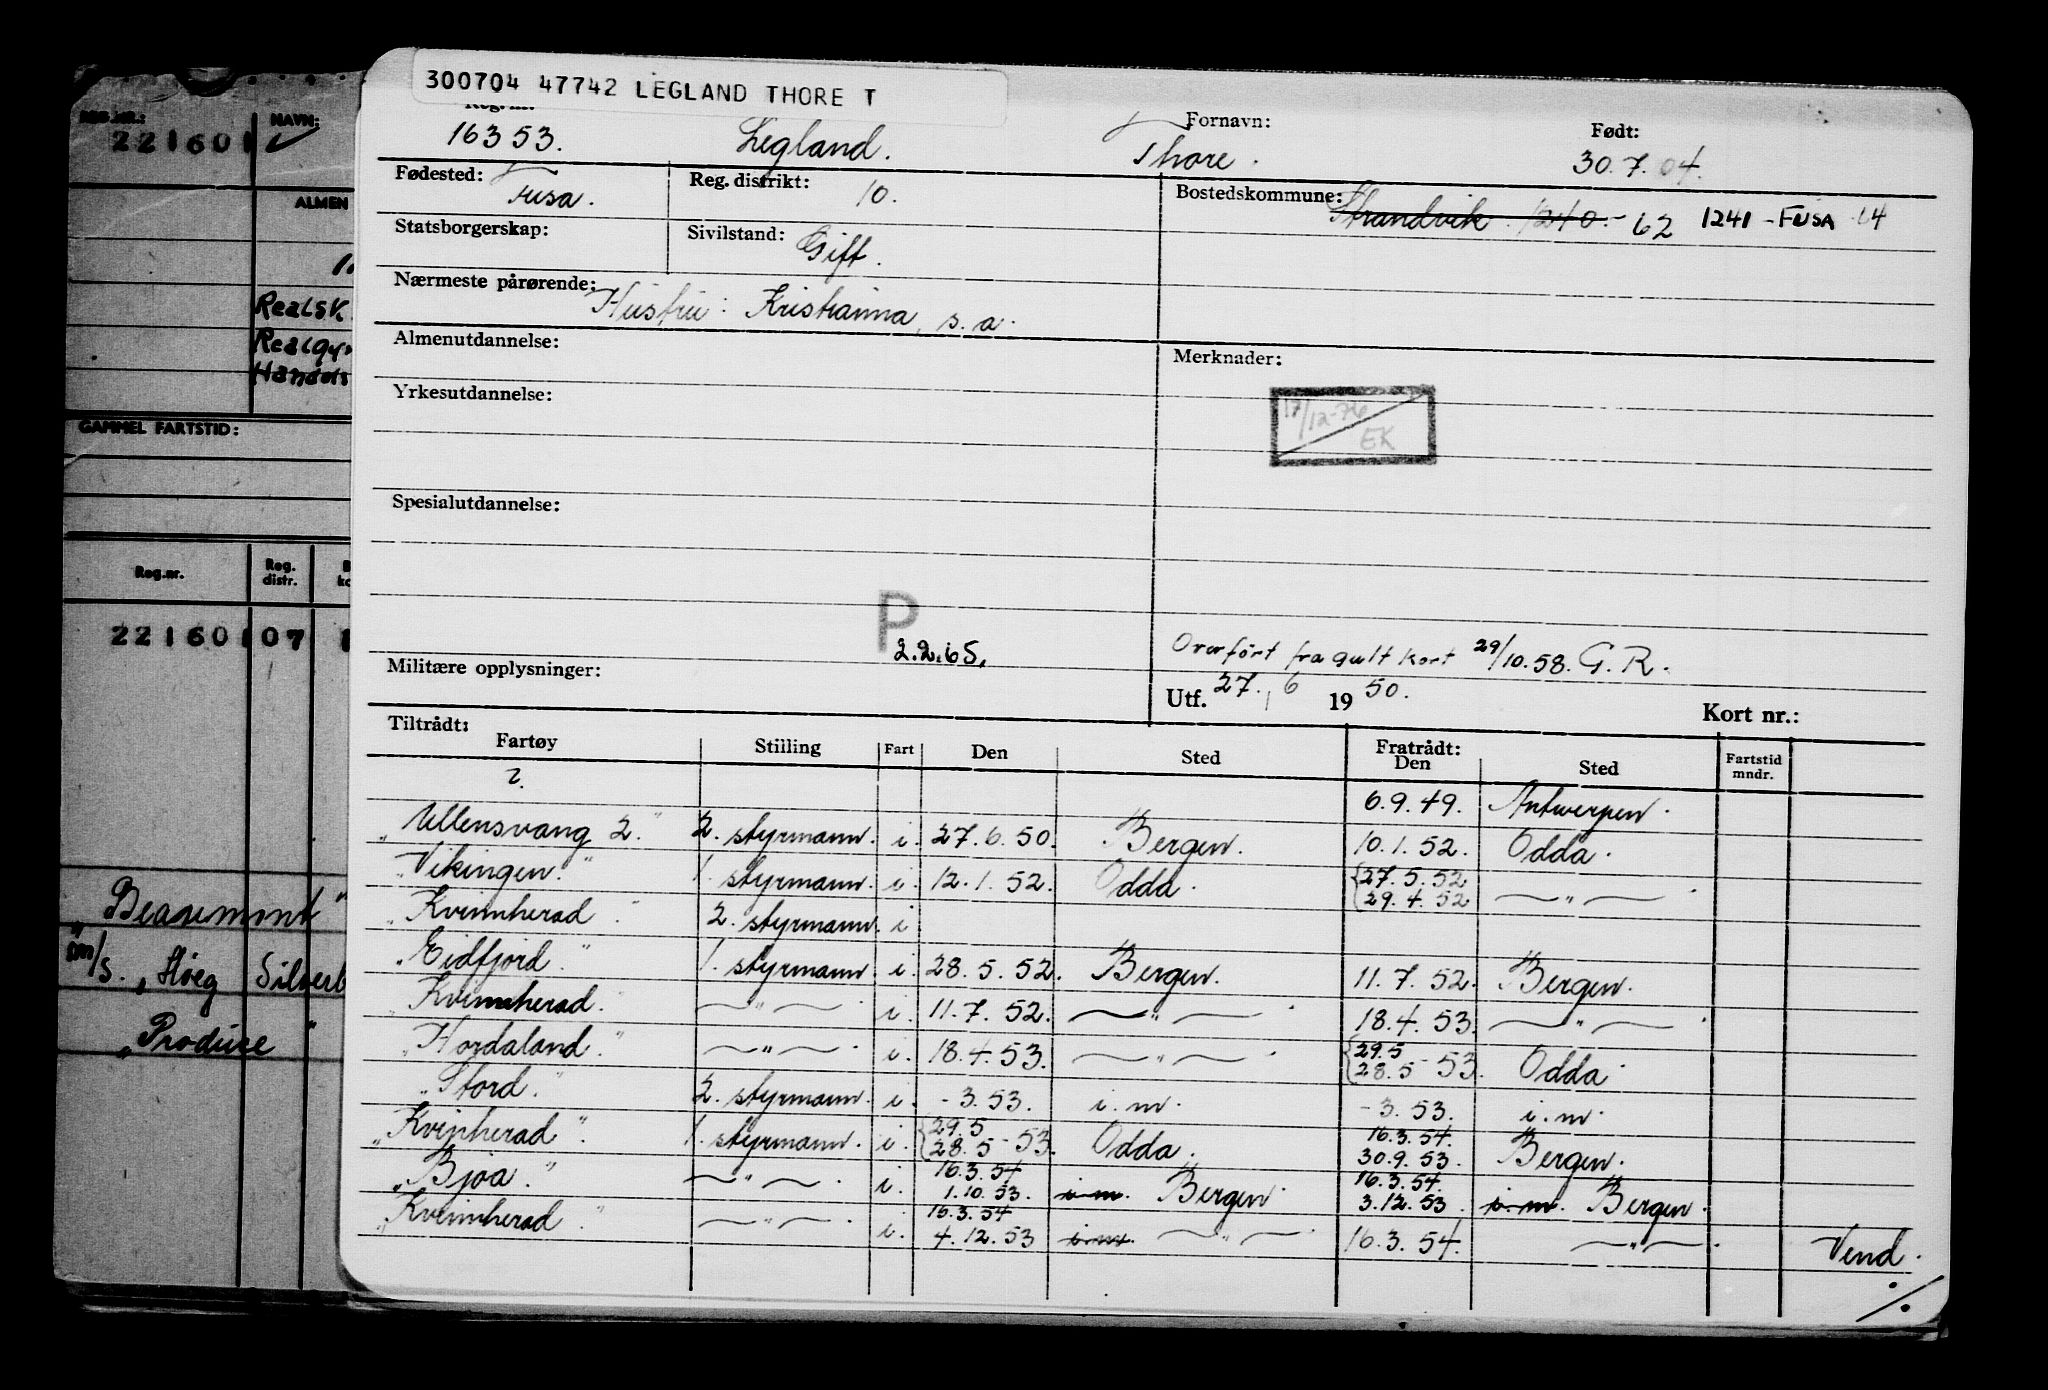 300704 47742 LEGLAND THORE T
Reg. nr. Fornavn: Født:
16353. Legland. Thore. 30.7.04.
Fødested: Fusa. Reg. distrikt: 10. Bostedskommune: Strandvik. 1240.- 62 1241 - FUSA 64
Statsborgerskap: Sivilstand: Gift.
Nærmeste pårørende: Hustru: Kristianna, s.a.
Almenutdannelse: Merknader:
Yrkesutdannelse: 17/12-76 EK
Spesialutdannelse:
P
2.2.65.
Overført fra gult kort 29/10.58. G.R.
Militære opplysninger: Utf. 27. / 6 1950. Kort nr.:
Tiltrådt: Fratrådt:
Fartøy Stilling Fart Den Sted Den Sted Fartstid mndr.
? 6.9.49. Antwerpen.
"Ullensvang 2." 2. styrmann. i. 27.6.50. Bergen. 10.1.52. Odda.
"Vikingen." 1. styrmann. i. 12.1.52. Odda. {27.5.52 29.4.52 — " — .
"Kvinnherad." 2. styrmann. i
"Eidfjord." 1. styrmann. i. 28.5.52. Bergen. 11.7.52. Bergen.
"Kvinnherad." — " — . i. 11.7.52. — " — . 18.4.53. — " — .
"Hordaland." — " — . i. 18.4.53. — " — . {29.5 28.5-53. Odda.
"Stord." 2. styrmann. i. -3.53. i.m. -3.53. i.m.
"Kvinherad". 1. styrmann. i. {29.5 28.5-53. Odda. 16.3.54. 30.9.53. Bergen.
"Bjoa." — " — . i. 16.3.54 1.10.53. i.m. Bergen. 16.3.54. 3.12.53. i.m. Bergen.
"Kvinnherad." — " — . i. 16.3.54 4.12.53 i.m. — " — . 16.3.54. — " — . Vend.
./.
REG.NR.: NAVN:
221601
ALMEN
Realsk.
Realgy
Handels
GAMMEL FARTSTID:
Reg.nr. Reg. distr.
221601 07 1
"Beaumont"
m/s. "Høeg Silverb
"Produce"